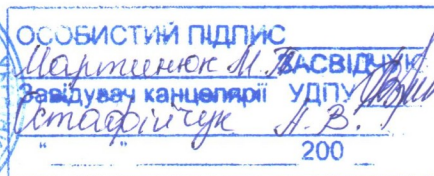 ОСОБИСТИЙ ПІДПИС
Мартинюк М.Т. ЗАСВІДЧУЮ
Завідувач канцелярії УДПУ
Остафійчук А.В.
" " 200